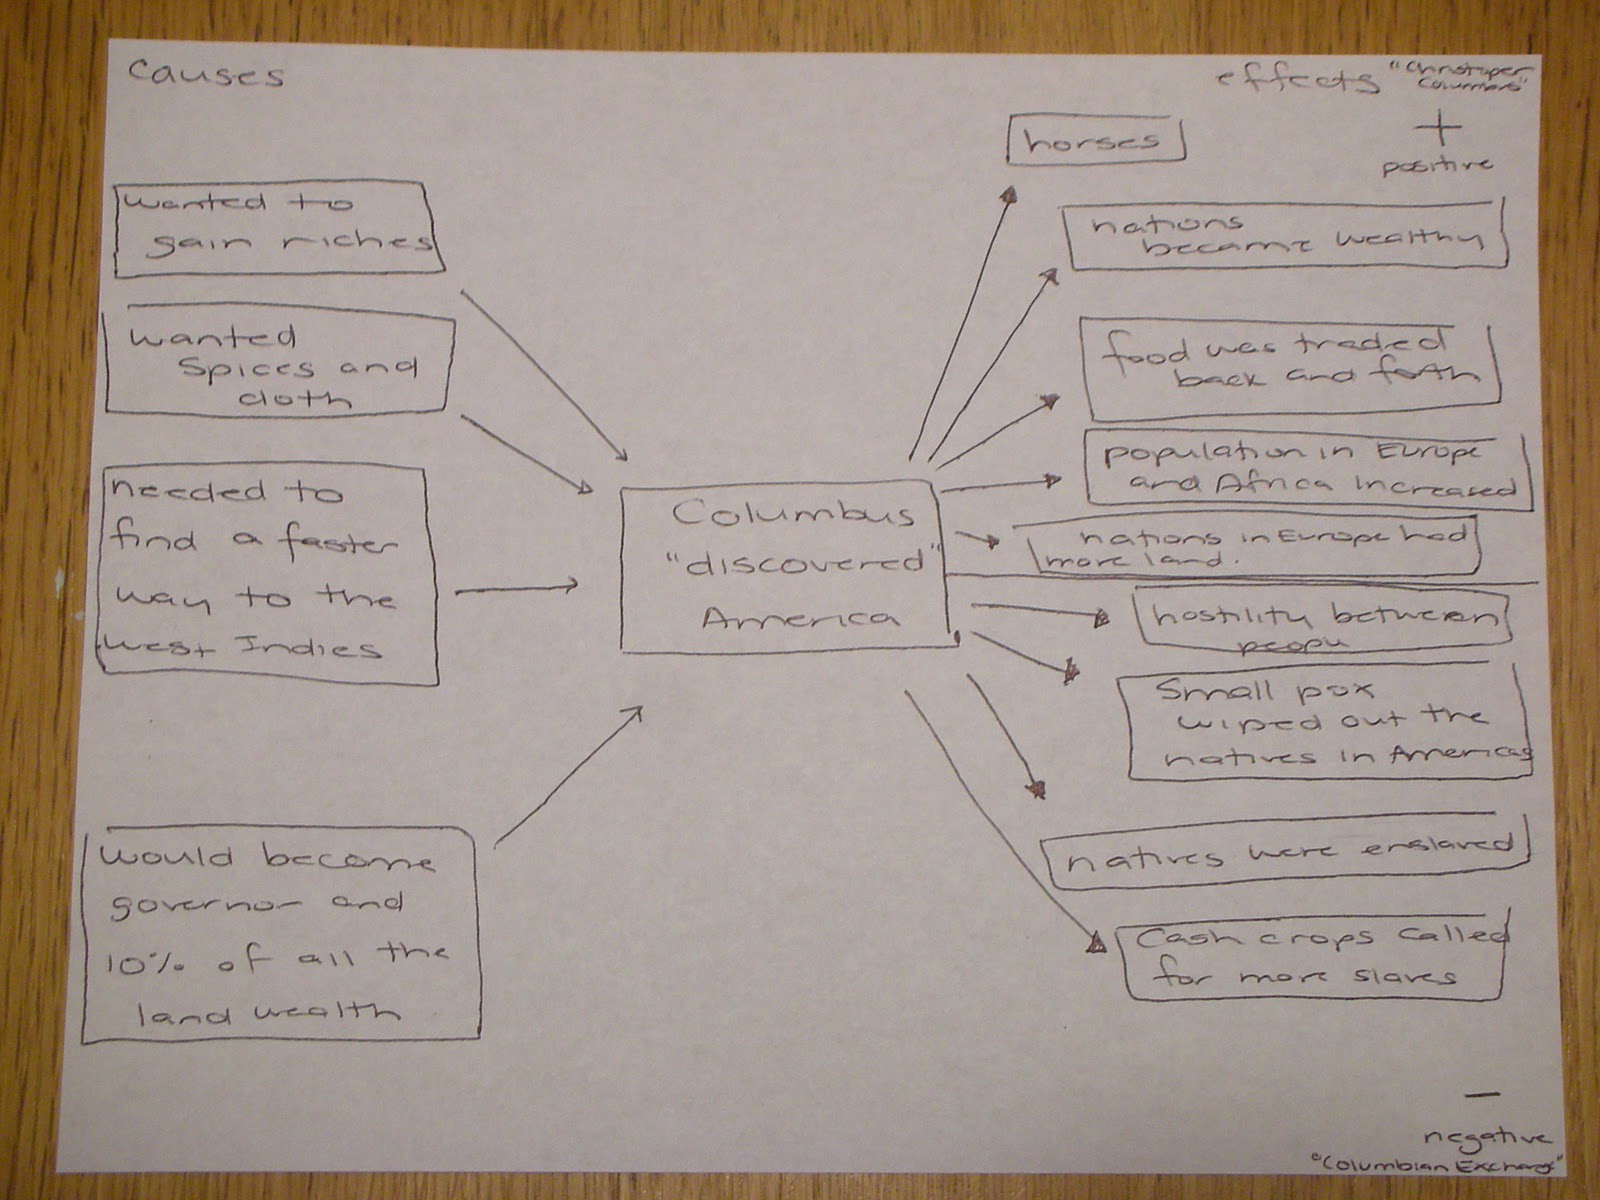 causes
effects "Christoper
Columbus"
+
positive
wanted to
gain riches
wanted
Spices and
cloth
needed to
find a faster
way to the
West Indies
would become
governor and
10% of all the
land wealth
Columbus
"discovered"
America
horses
nations
became wealthy
food was traded
back and forth
population in Europe
and Africa increased
nations in Europe had
more land.
hostility between
peopu
Small pox
wiped out the
natives in Americas
natives were enslaved
Cash crops called
for more slaves
—
negative
"Columbian Exchange"